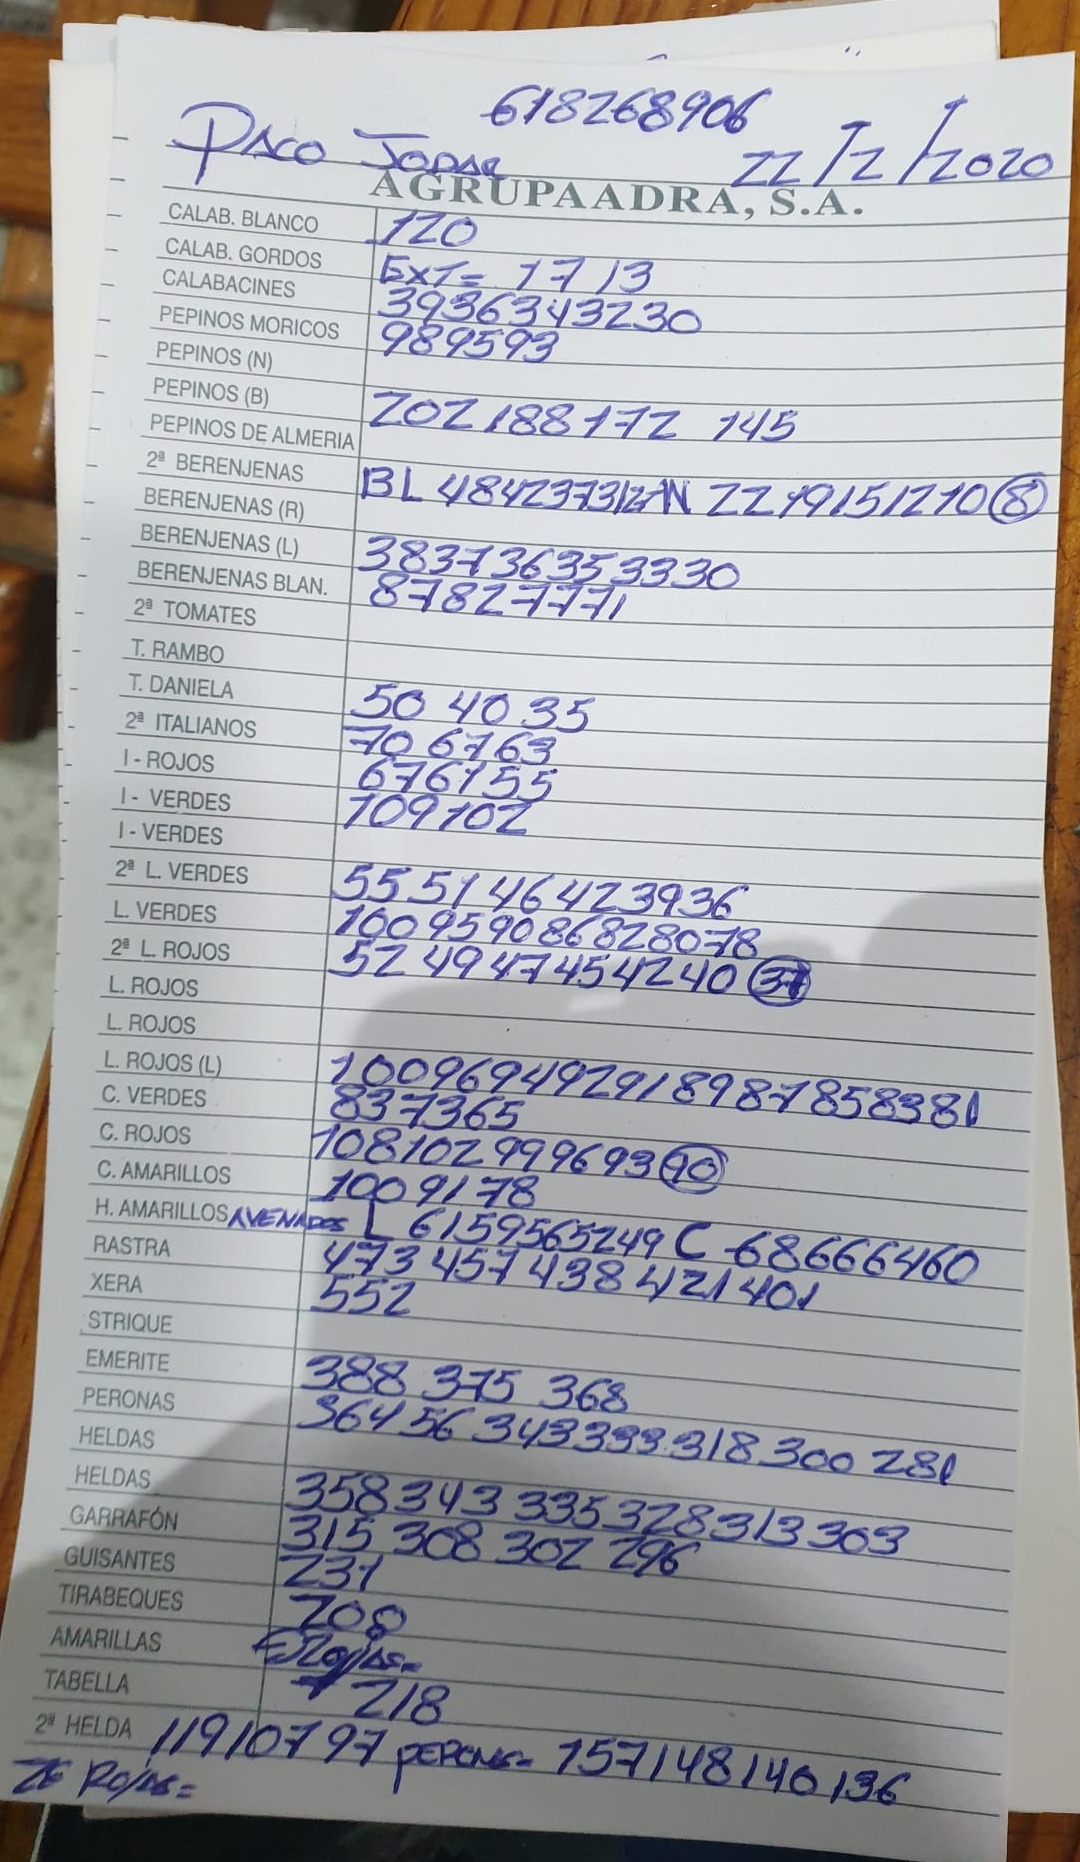 618268906
PACO JODAR 22/2/2020
AGRUPAADRA, S.A.
CALAB. BLANCO 120
CALAB. GORDOS EXT= 17 13
CALABACINES 3936343230
PEPINOS MORICOS 989593
PEPINOS (N)
PEPINOS (B) 202 188 172 145
PEPINOS DE ALMERIA
2ª BERENJENAS BL 4842373127AN 22 19151210 8
BERENJENAS (R)
BERENJENAS (L) 383736353330
BERENJENAS BLAN. 87827771
2ª TOMATES
T. RAMBO
T. DANIELA 50 40 35
2ª ITALIANOS 706763
I - ROJOS 676155
I - VERDES 109102
I - VERDES
2ª L. VERDES 55 51 46 423936
L. VERDES 100959086828078
2ª L. ROJOS 52 4947454240 37
L. ROJOS
L. ROJOS
L. ROJOS (L) 1009694929189878583 81
C. VERDES 837365
C. ROJOS 108102999693 90
C. AMARILLOS 1009178
H. AMARILLOS AVENADOS L 6159565249 C 68666460
RASTRA 473 457 438 421 401
XERA 552
STRIQUE
EMERITE 388 375 368
PERONAS 364 56 343 333 318 300 281
HELDAS
HELDAS 358 343 335 328 313 303
GARRAFÓN 315 308 302 296
GUISANTES 231
TIRABEQUES 208
AMARILLAS
TABELLA 218
2ª HELDA 119107 97 PERONAS= 157148140136
2ª ROJAS=